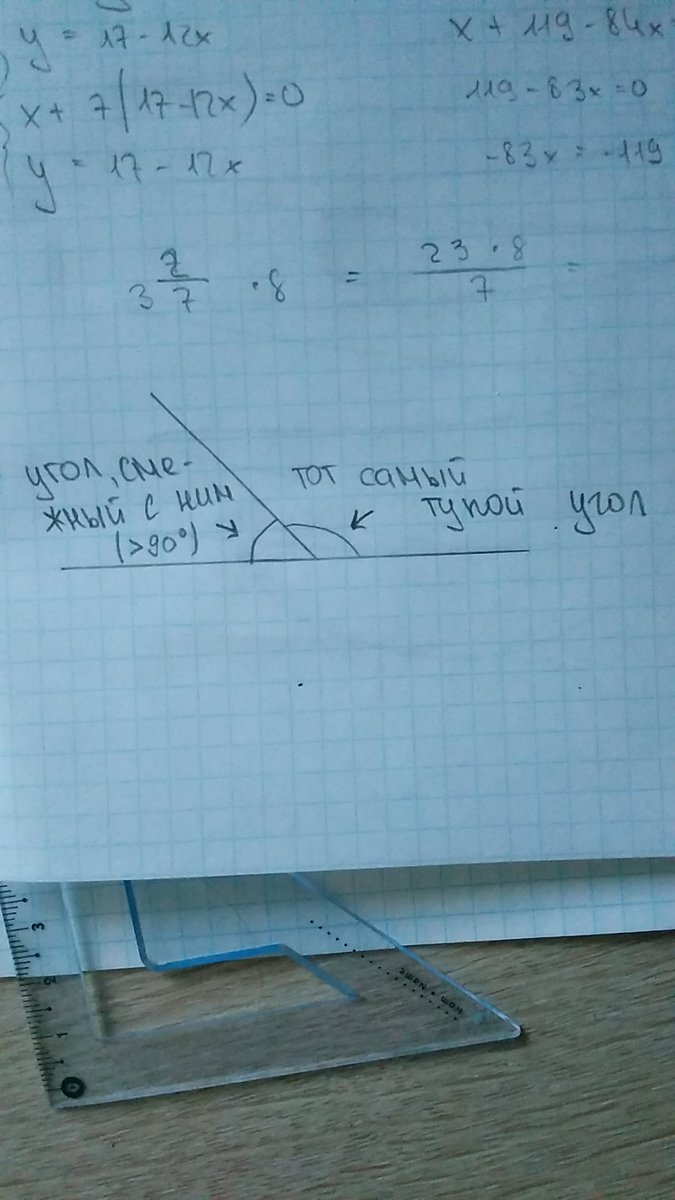 y = 17 - 12x
x + 7(17-12x)=0
y = 17 - 12x
x + 119 - 84x
119 - 83x = 0
-83x = -119
3 2/7 · 8 = 23 · 8 / 7 =
угол, сме-
жный с ним
(>90°)
тот самый
тупой угол
3
2
1
0